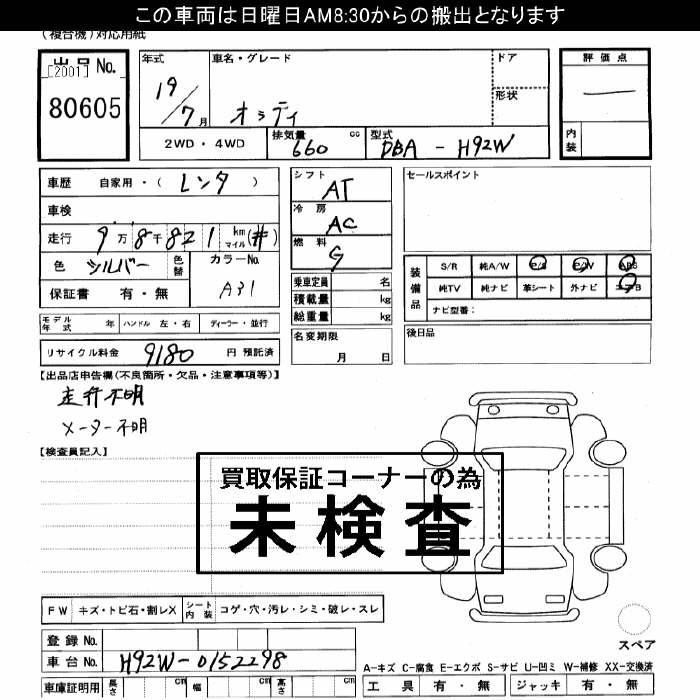 この車両は日曜日AM8:30からの搬出となります
(複合機)対応用紙
出品No. [2001] 80605
年式 19/7月
車名・グレード オッティ
ドア
形状
評価点 ―
内装
2WD・4WD
排気量 660 cc
型式 DBA-H92W
車歴 自家用・(レンタ)
車検
走行 9万8千821 km マイル(#)
色 シルバー 色替 カラーNo. A31
保証書 有・無
シフト AT
冷房 AC
燃料 G
乗車定員 名
積載量 kg
総重量 kg
セールスポイント
装備品 S/R 純A/W P/S P/W ABS
純TV 純ナビ 革シート 外ナビ エアB
ナビ型番:
モデル年式 年 ハンドル 左・右 ディーラー・並行
名変期限 月 日
後日品
リサイクル料金 9180 円 預託済
【出品店申告欄(不良箇所・欠品・注意事項等)】
走行不明
メーター不明
【検査員記入】
買取保証コーナーの為
未検査
FW キズ・トビ石・割レX シート内装 コゲ・穴・汚レ・シミ・破レ・スレ
スペア
登録No.
車台No. H92W-0152298
A-キズ C-腐食 E-エクボ S-サビ U-凹ミ W-補修 XX-交換済
車庫証明用 長さ cm 幅 cm 高さ cm
工具 有・無 ジャッキ 有・無